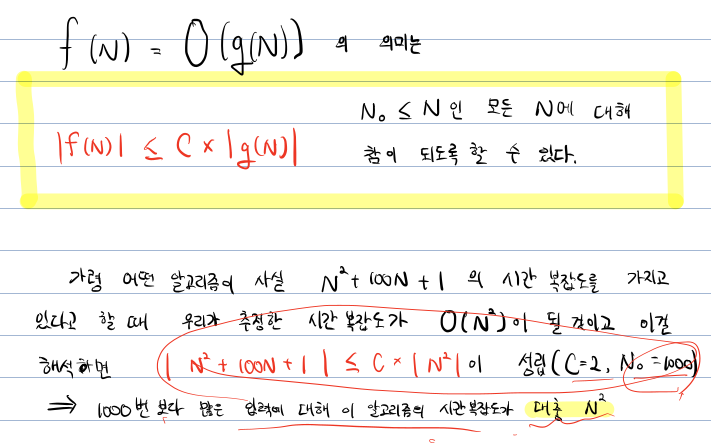 f(N) = O(g(N)) 의 의미는
|f(N)| ≤ C × |g(N)| N₀ ≤ N 인 모든 N에 대해
참이 되도록 할 수 있다.
가령 어떤 알고리즘이 사실 N² + 100N + 1 의 시간 복잡도를 가지고
있다고 할 때 우리가 추정한 시간 복잡도가 O(N²)이 될 것이고 이걸
해석하면 | N² + 100N + 1 | ≤ C × | N² | 이 성립 (C = 2, N₀ = 1000)
⇒ 1000번 보다 많은 입력에 대해 이 알고리즘의 시간복잡도가 대충 N²